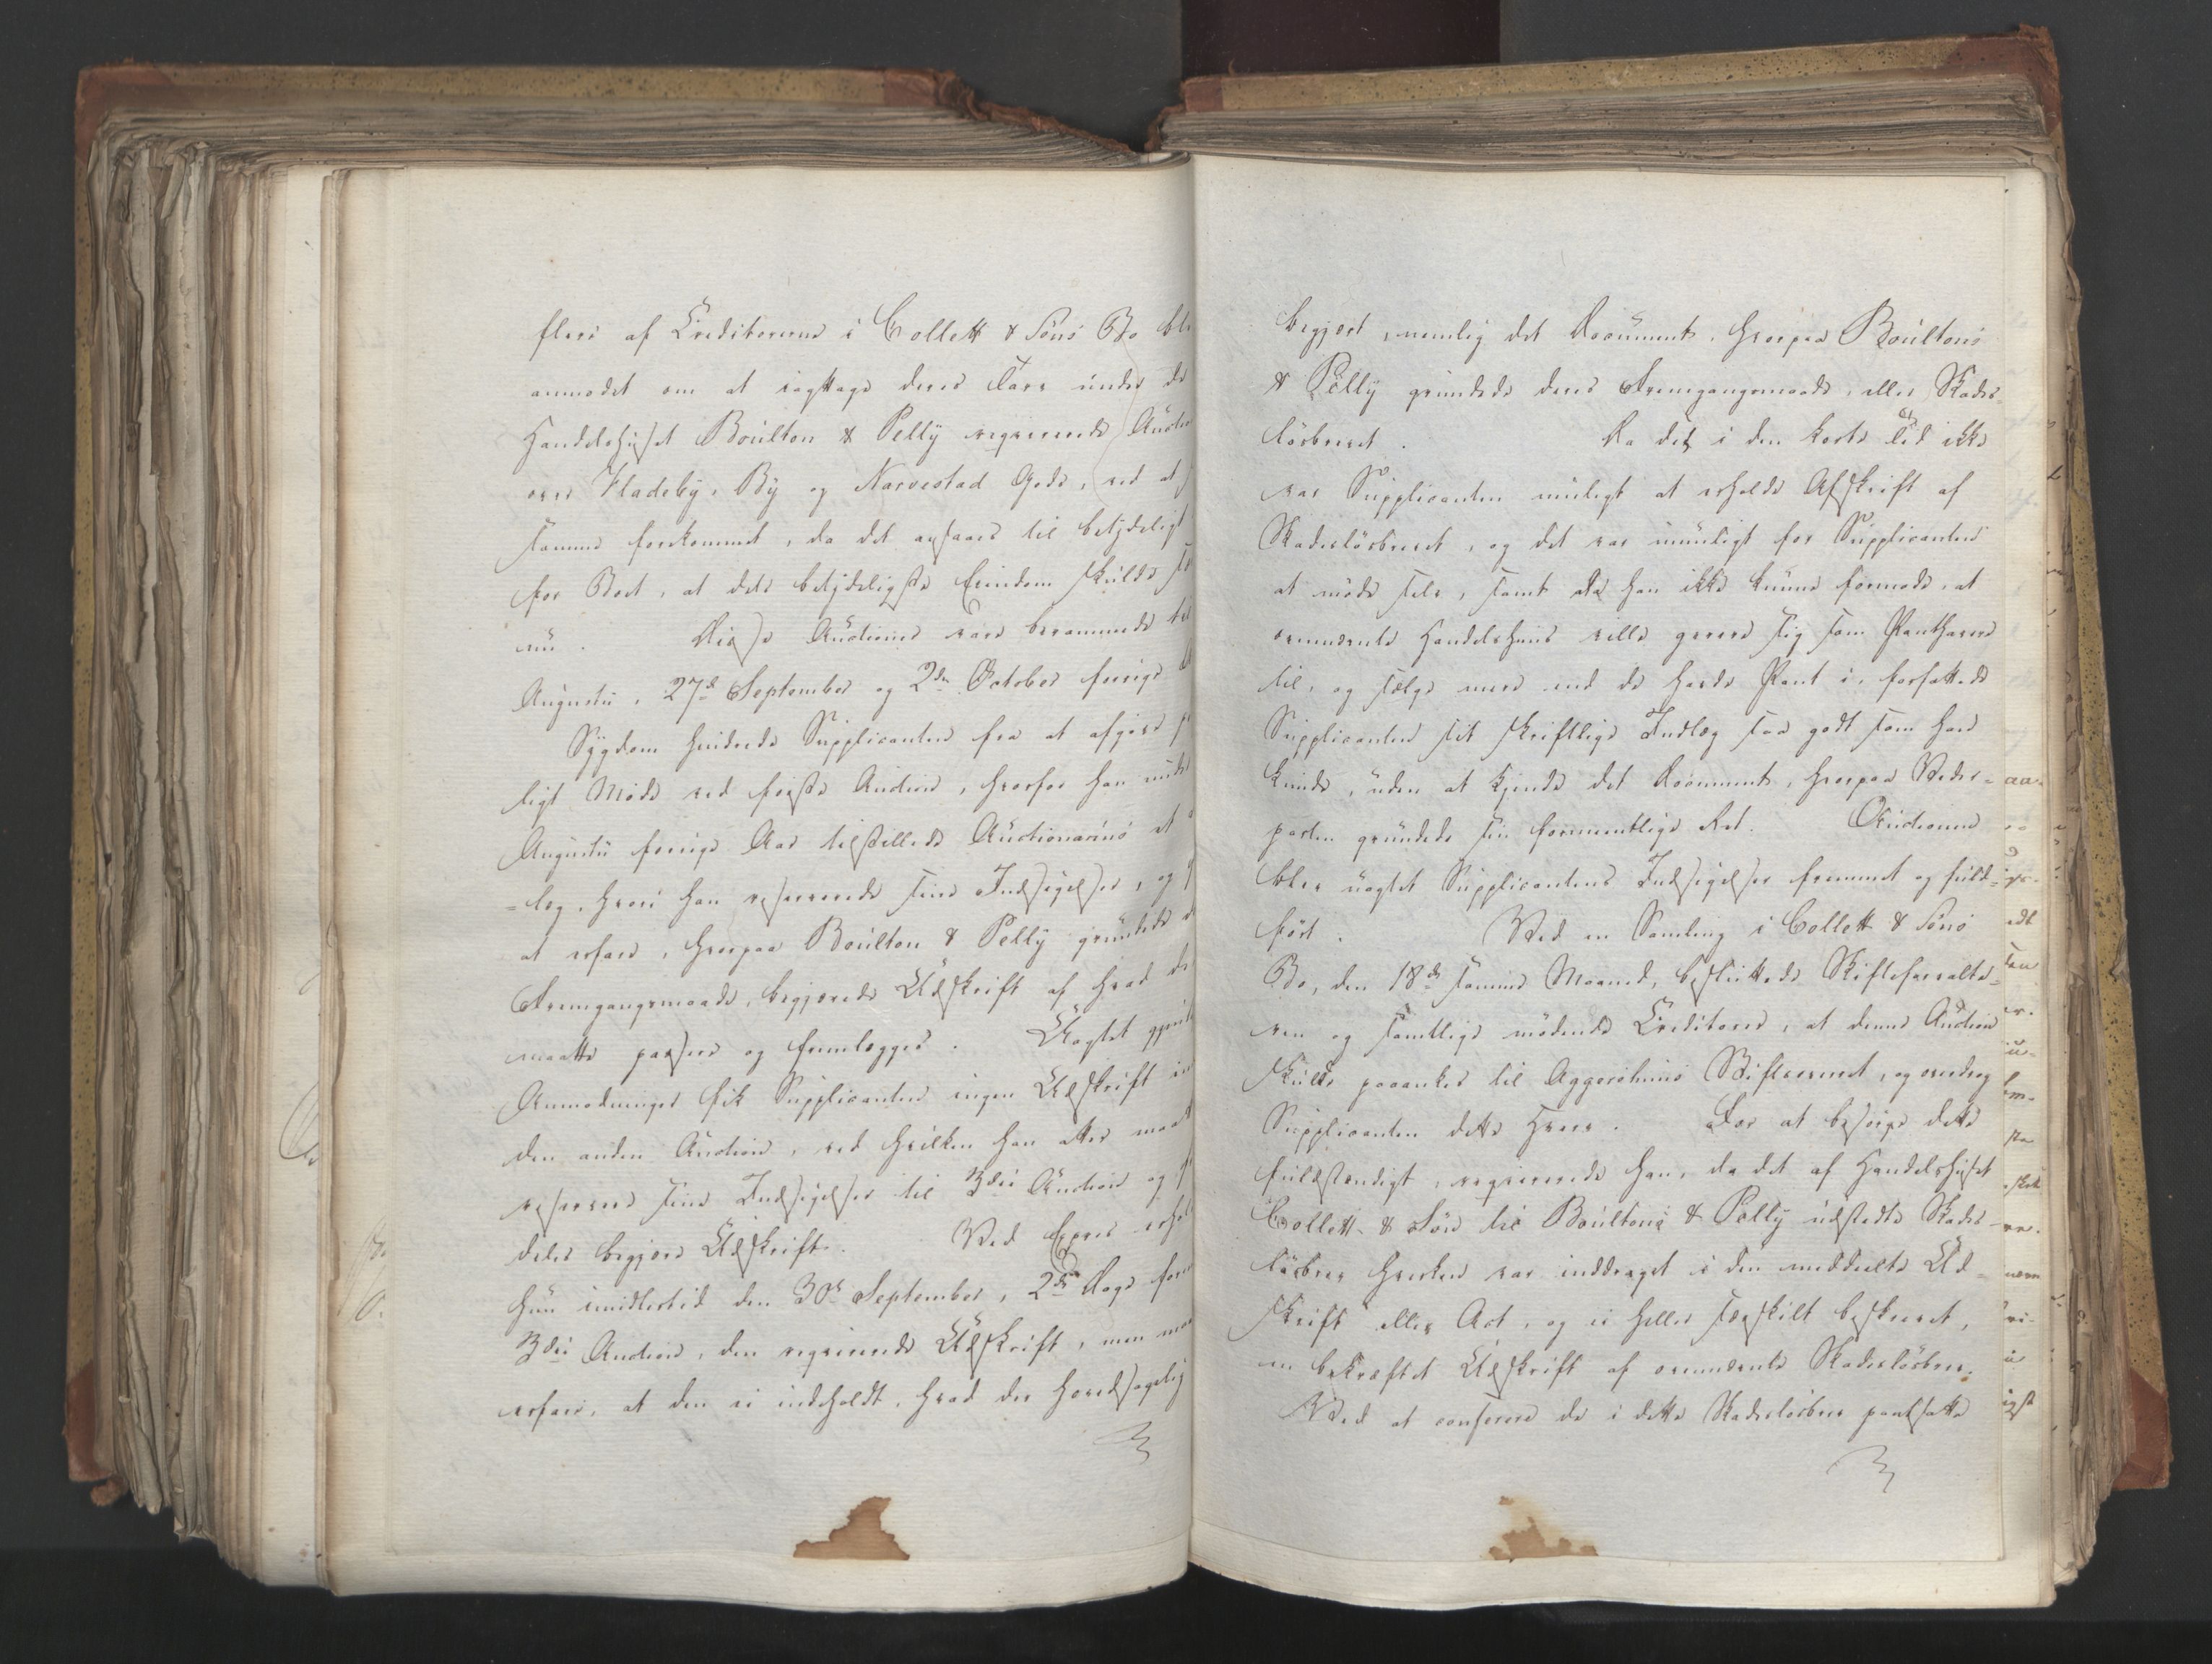 flere af Creditorerne i Collett & Söns Bo ble
anmodet om at iagttage deres Tarv under de
Handelshuset Boulton & Pelly reqvirerede Auctio
over Fladeby, By og Narvestad Gods, ved at
samme forekommet, da det ansaaes til betydeligt
for Boet, at dets betydeligste Eiendom skulde
nu. Disse Auctioner vare berammede til
Augusti, 27de September og 2den October forrige
Sygdom hindrede Supplicanten fra at afgive
ligt Möde ved förste Auction, hvorfor han under
Augustii forrige Aar tilstillede Auctionarius et
=læg, hvori han reserverede sine Indsigelser, og
at erfare, hvorpaa Boulton & Pelly grundede
Fremgangsmaade, begjerede Udskrift af hvad der
maatte passere og fremlægges. Uagtet
Anmodninger fik Supplicanten ingen Udskrift
den anden Auction, ved hvilken han atter maatte
reservere sine Indsigelser til 3die Auction og
deles begjere Udskrift. Ved Expres erholdt
han imidlertid den 30te September, 2de Dage foren
3die Auction, den reqvirerede Udskrift, men
erfare, at den ei indeholdt, hvad der hovedsagelig
begjert, nemlig det Document, hvorpaa Boultons
& Pelly grundede deres Fremgangsmaade, eller Skades=
lösbrevet. Da det i den korte Tid ikke
var Supplicanten muligt at erholde Afskrift af
Skadeslösbrevet, og det var umuligt for Supplicanten
at möde selv, samt da han ikke kunne formode, at
ommeldte Handelshuus ville gerere sig som Panthavere
til, og sælge mere end de havde Pant i, forfattede
Supplicanten sit skriftlige Indlæg saa godt som han
kunde, uden at kjende det Document, hvorpaa Veder=
parten grundede sin formeentlige Ret. Auctionen
blev uagtet Supplicantens Indsigelser fremmet og fuld=
fört. Ved en Samling i Collett & Söns
Bo, den 18de samme Maaned, besluttede Skifteforvalte=
ren og samtlige mödende Creditorer, at denne Auction
skulde paaankes til Aggershuus Stiftsoverret, og overdrog
Supplicanten dette Hverv. For at besörge dette
fuldstændigt, reqvirerede han, da det af Handelshuset
Collett & Sön til Boultons & Pelly udstedte Skades=
lösbrev hverken var inddraget i den meddeelte Ud=
skrift eller Act, og ei heller særskilt beskrevet,
en bekræftet Udskrift af ommeldte Skadeslösbrev.
Ved at conferere de i dette Skadeslösbrev pantsatte